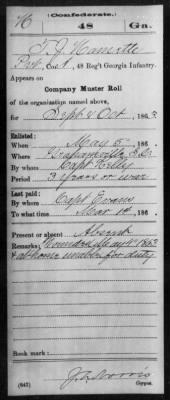 H (Confederate.)
48 Ga.
T. J. Hamette
Pvt, Co. A, 48 Reg't Georgia Infantry.
Appears on
Company Muster Roll
of the organization named above,
for Sept & Oct, 1863
Enlisted:
When May 5, 186
Where Grahamville S.C.
By whom Capt Kellly
Period 3 Years or war
Last paid:
By whom Capt Evans
To what time Mar 1st, 186
Present or absent Absent
Remarks: Wounded May 4th 1863
& at home unable for duty
Book mark:
(642) J. A. Norris
Copyist.